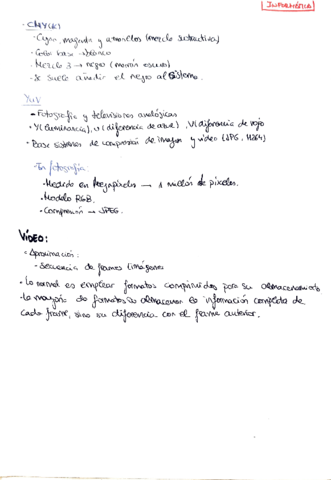 INFORMÁTICA
CMYK:
- Cyan, magenta y amarillos (mezcla sustractiva)
- Color base → blanco
- Mezcla 3 → negro (marrón oscuro)
- Se suele añadir el negro al sistema.
YUV
- Fotografía y televisiones analógicas
- Y (luminancia), U (diferencia de azul), V (diferencia de rojo
- Base sistemas de compresión de imagen y video (JPG, H264)
- En fotografía
- Medido en Megapíxeles → 1 millón de píxeles.
- Modelo RGB.
- Compresión → JPEG.
VÍDEO:
- Aproximación:
- Secuencia de frames (imágenes
- Lo normal es emplear formatos comprimidos para su almacenamiento
- La mayoría de formatos no almacenan la información completa de
cada frame, sino su diferencia con el frame anterior.